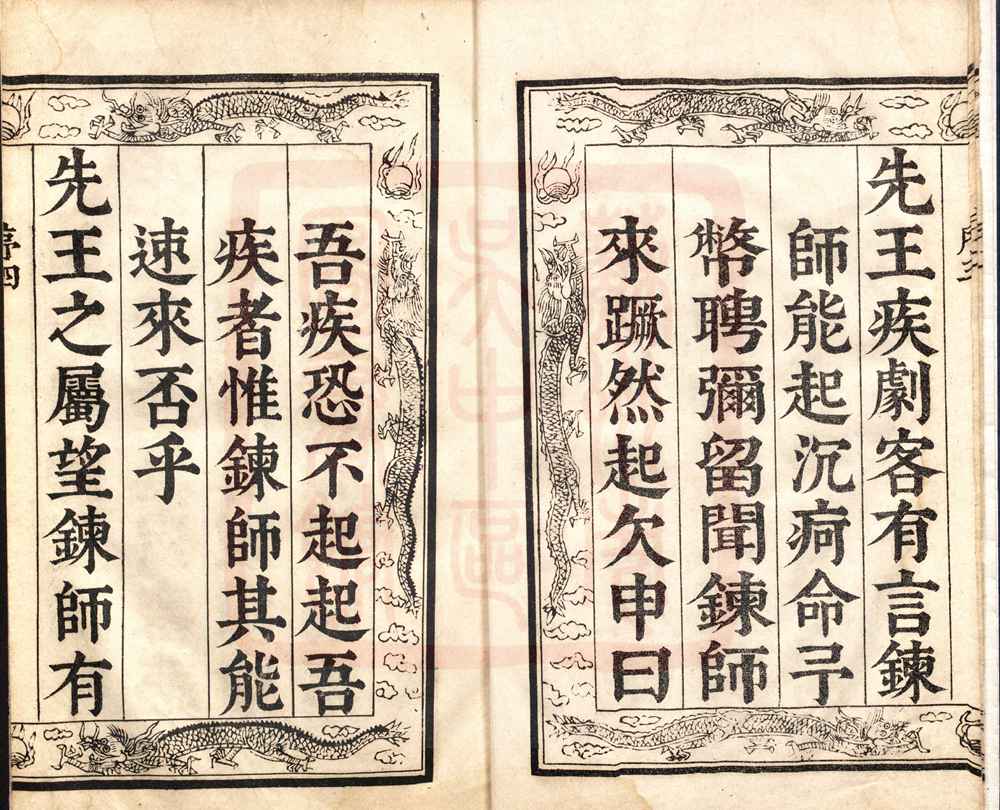 先王疾劇客有言鍊
師能起沉疴命弓
幣聘彌留聞鍊師
來蹶然起欠申曰
吾疾恐不起起吾
疾者惟鍊師其能
速來否乎
先王之屬望鍊師有
序四